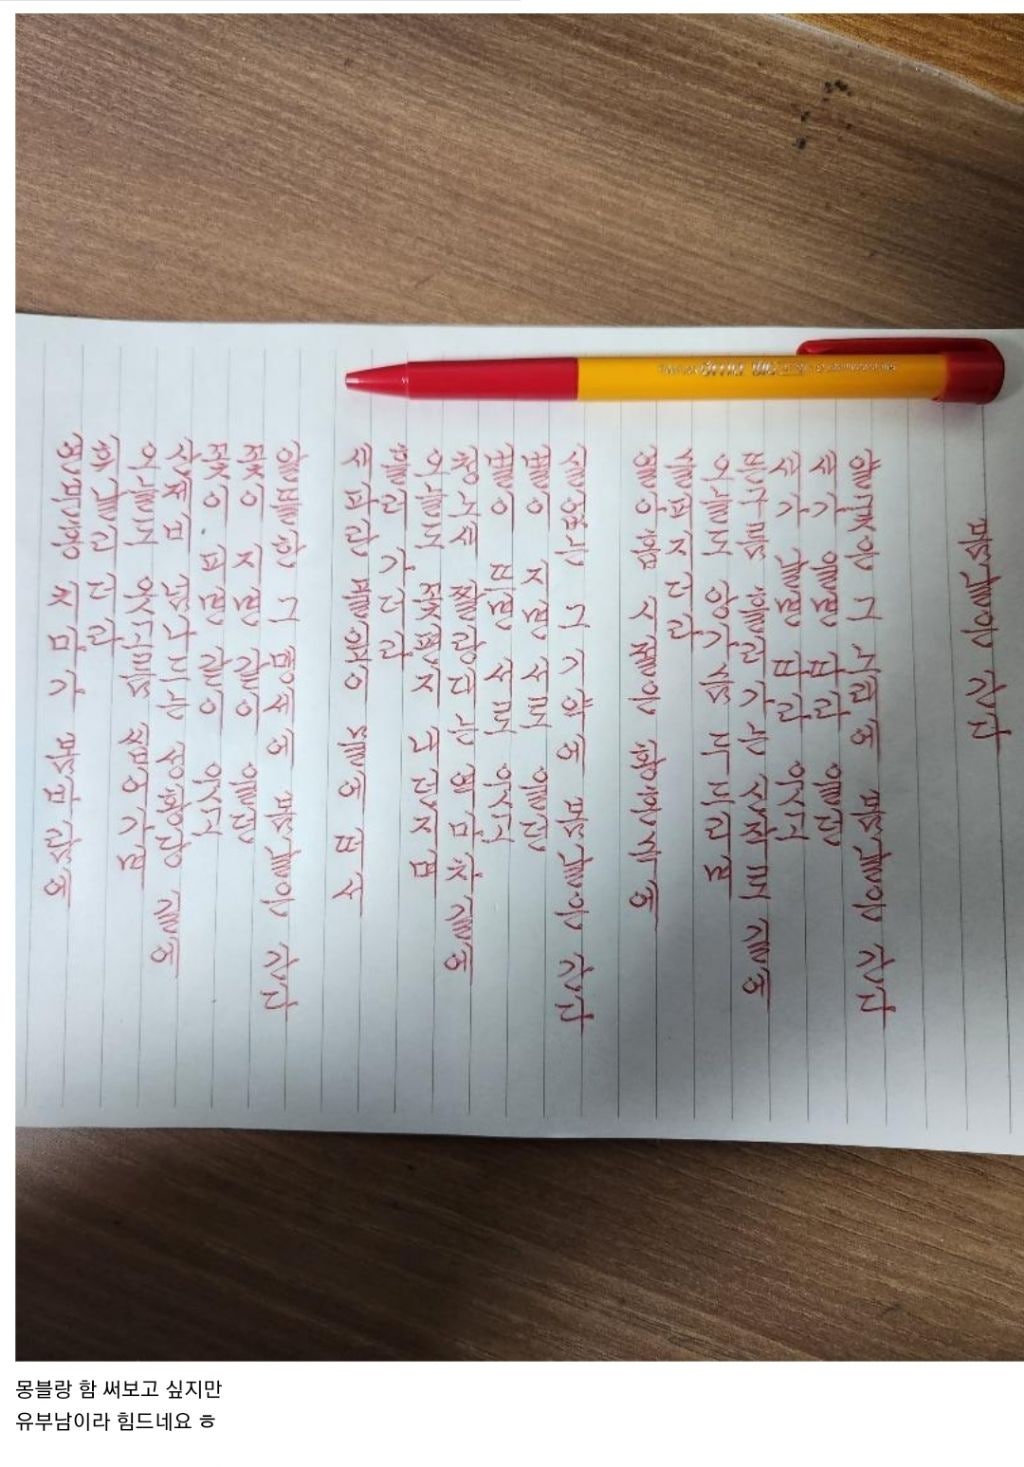 연분홍 치마가 봄바람에
휘날리더라
오늘도 옷고름 씹어가며
산제비 넘나드는 성황당 길에
꽃이 피면 같이 웃고
꽃이 지면 같이 울던
알뜰한 그 맹세에 봄날은 간다
새파란 풀잎이 물에 떠서
흘러가더라
오늘도 꽃편지 내던지며
청노새 짤랑대는 역마차 길에
별이 뜨면 서로 웃고
별이 지면 서로 울던
실없는 그 기약에 봄날은 간다
열아홉 시절은 황혼속에
슬퍼지더라
오늘도 앙가슴 두드리며
뜬구름 흘러가는 신작로 길에
새가 날면 따라 웃고
새가 울면 따라 울던
얄궂은 그 노래에 봄날은 간다
봄날은 간다
OFFICE BIG
몽블랑 함 써보고 싶지만
유부남이라 힘드네요 ㅎ